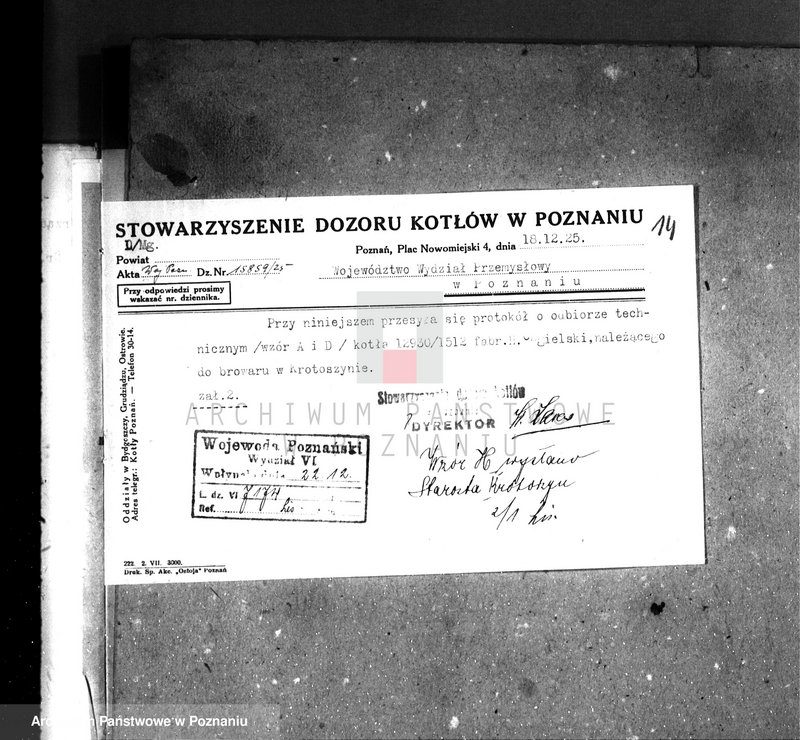 STOWARZYSZENIE DOZORU KOTŁÓW W POZNANIU
14
D/Mg.
Poznań, Plac Nowomiejski 4, dnia 18.12.25.
Powiat
Akta Woj. Dz. Nr. 15859/25
Województwo Wydział Przemysłowy
w Poznaniu
Przy odpowiedzi prosimy
wskazać nr. dziennika.
Przy niniejszem przesyła się protokół o odbiorze tech-
nicznym /wzór A i D / kotła 12930/1512 fabr.H.Cegielski,należącego
do browaru w Krotoszynie.
zał.2.
Oddziały w Bydgoszczy, Grudziądzu, Ostrowie.
Adres telegr.: Kotły Poznań. — Telefon 30-14.
Stowarzyszenie dozoru kotłów
DYREKTOR
Wojewoda Poznański
Wydział VI
Wpłynęło dnia 22.12.
L. dz. VI 7174
Ref. his
Wzór H wysłano
Starosta Krotoszyn
2/1 his.
222. 2. VII. 3000.
Druk. Sp. Akc. „Ostoja" Poznań
ARCHIWUM PAŃSTWOWE
W POZNANIU
Archiwum Państwowe w Poznaniu